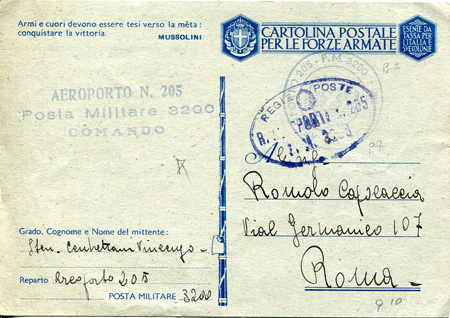 Armi e cuori devono essere tesi verso la mèta:
conquistare la vittoria. MUSSOLINI
CARTOLINA POSTALE
PER LE FORZE ARMATE
ESENTE DA
TASSA PER
L'ITALIA
E SUE COLONIE
AEROPORTO N. 205
Posta Militare 3200
COMANDO
205 - P.M. 3200
POSTE
205
Romolo
Vial Germanico 107
Roma
Grado, Cognome e Nome del mittente:
Sten. Vincenzo
Reparto Areoporto 205
POSTA MILITARE 3200